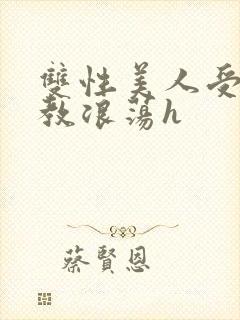 雙性美人受
教浪蕩h
蔡賢恩